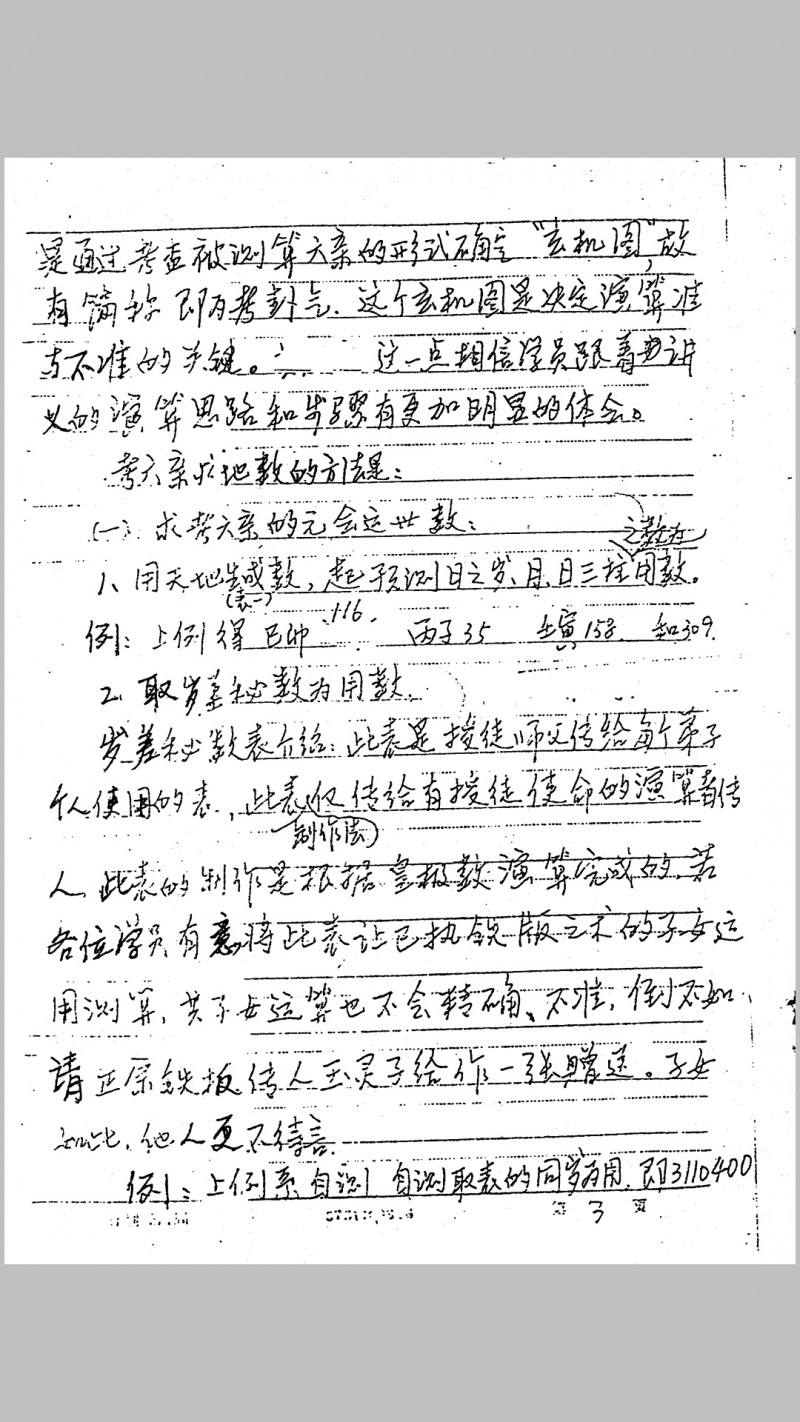 是通过考查被测算六亲的形式确定“玄机图”，故
有简称即为考卦气．这个玄机图是决定演算准
与不准的关键。 这一点相信学员跟着此讲
义的演算思路和步骤有更加明显的体会。
考六亲求地数的方法是：
(一) 求考六亲的元会运世数：
之数为
1、用天地生成数，起预测日之岁、月、日三柱用数。
(表一)
例：上例得己卯116． 丙子35 壬寅158 和309．
2．取岁差秘数为用数．
岁差秘数表介绍：此表是授徒师父传给每个弟子
个人使用的表，此表仅传给有授徒使命的演算者传
制作法
人．此表的制作是根据皇极数演算完成的．若
各位学员有意将此表让已执铁版之术的子女运
用测算，其子女运算也不会精确、不准，倒不如
请正宗铁板传人玉灵子给作一张赠送。子女
如此，他人更不待言．
例：上例系自测 自测取表的同岁为用．即3110400
第 3 页